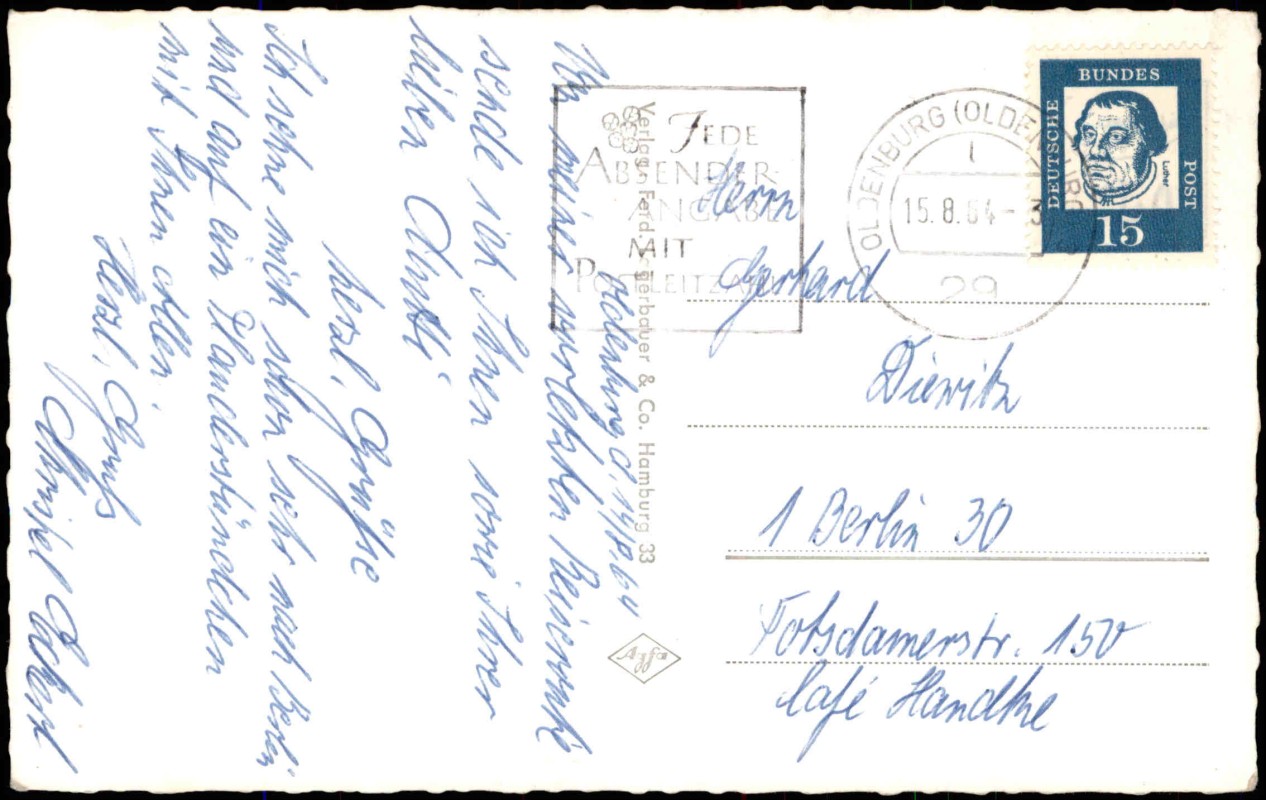 Oldenburg d. 14.8.64
Von meiner vorletzten Reiseroute
sende ich Ihnen sowie Ihrer
lieben Mutti
herzl. Grüße
Ich sehne mich schon sehr nach Berlin
und auf ein Plauderstündchen
mit Ihnen allen.
Herzl. Gruß
Verlag: Ferd. Lagerbauer & Co. Hamburg 33
Agfa
JEDE
ABSENDER-
ANGABE
MIT
POSTLEITZAHL
OLDENBURG (OLDENBURG)
15.8.64-3
29
DEUTSCHE BUNDESPOST
Luther
15
Herrn
Gerhard
Diewitz
1 Berlin 30
Potsdamerstr. 150
Café Handke